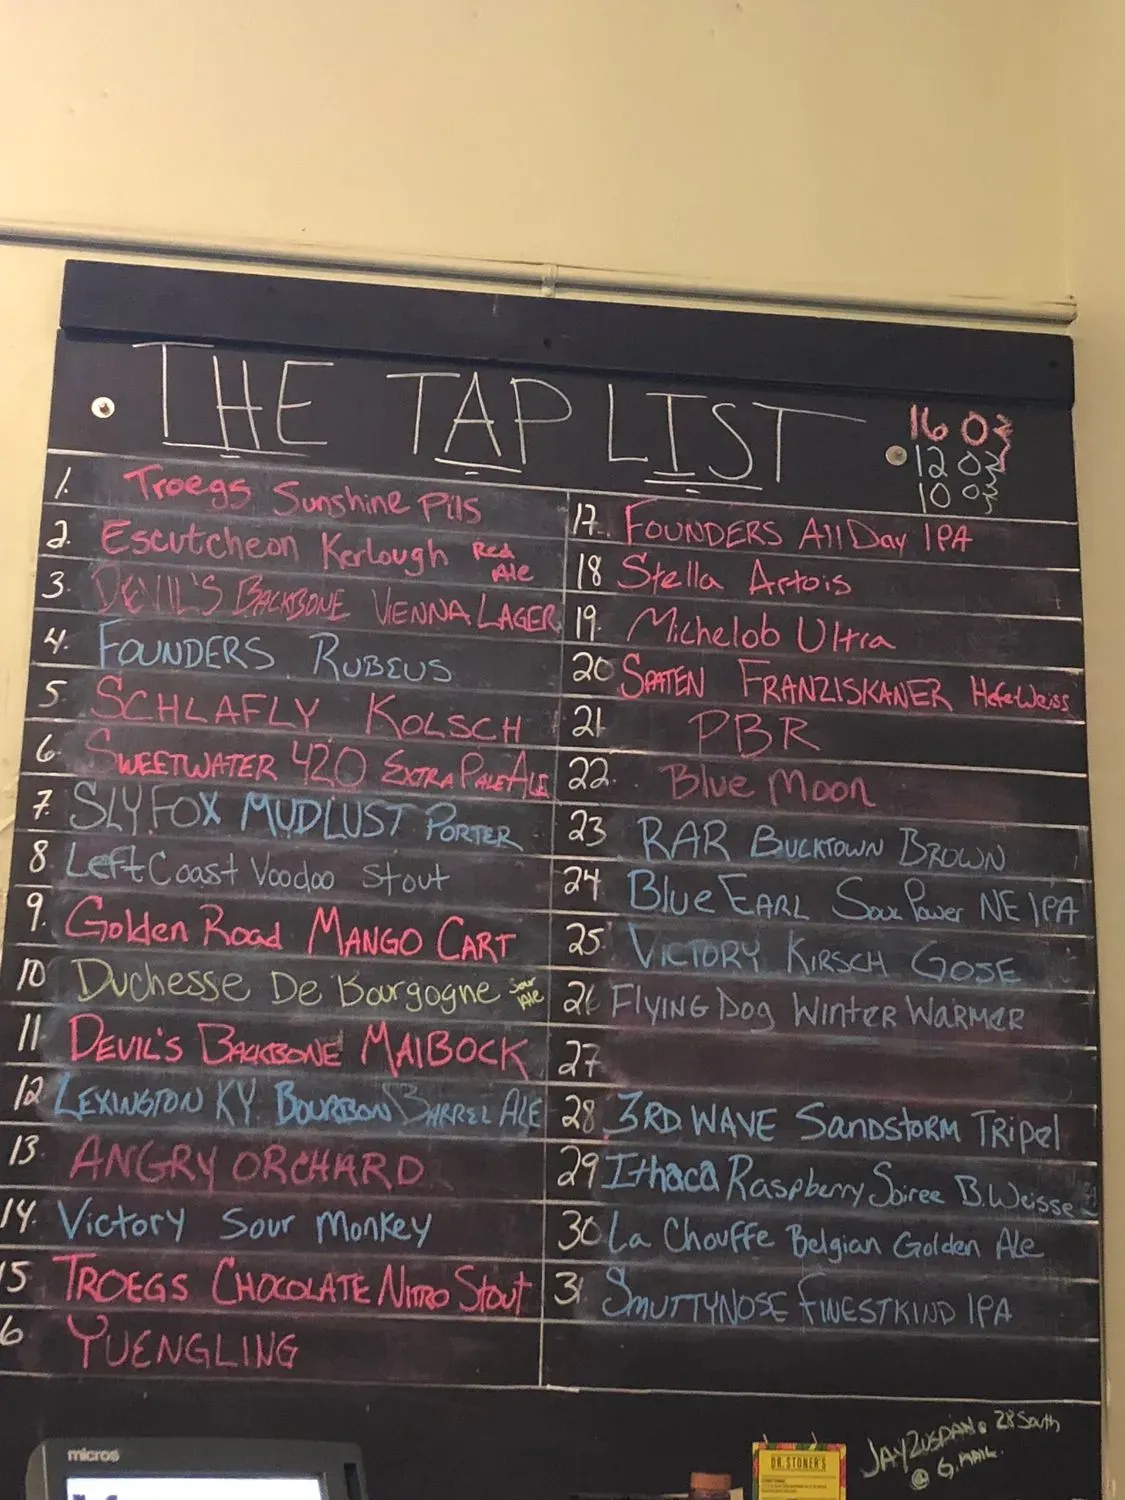 THE TAP LIST
16 OZ
12 OZ
10 OZ
1. Troegs Sunshine Pils
2. Escutcheon Kerlough Red Ale
3. DEVIL'S BACKBONE VIENNA LAGER
4. FOUNDERS RUBEUS
5 SCHLAFLY KOLSCH
6. SWEETWATER 420 EXTRA PALE ALE
7. SLY FOX MUDLUST PORTER
8 Left Coast Voodoo Stout
9. Golden Road MANGO CART
10 Duchesse De Bourgogne Sour Ale
11 DEVIL'S BACKBONE MAIBOCK
12 LEXINGTON KY BOURBON BARREL ALE
13 ANGRY ORCHARD
14. Victory Sour Monkey
15 TROEGS CHOCOLATE NITRO Stout
6 YUENGLING
17. FOUNDERS All Day IPA
18 Stella Artois
19. Michelob Ultra
20 SPATEN FRANZISKANER HefeWeiss
21 PBR
22. Blue Moon
23 RAR BUCKTOWN BROWN
24 Blue EARL Soul Power NE IPA
25 VICTORY KIRSCH GOSE
26 FLYING DOG WINTER WARMER
27
28 3RD WAVE SANDSTORM TRIPEL
29 Ithaca Raspberry Soiree B. Weisse
30 La Chouffe Belgian Golden Ale
31. SMUTTYNOSE FINESTKIND IPA
JAYZUSPAN. 28 South
@ G.MAIL.
micros
DR. STONER'S